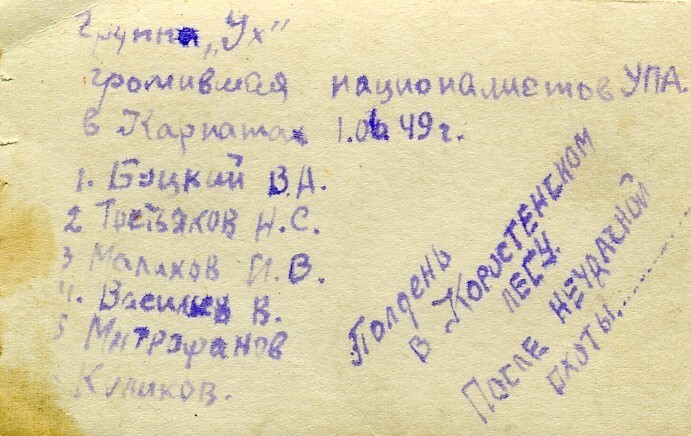 Группа „Ух"
громившая националистов УПА.
в Карпатах 1.06.49г.
1. Бацкий В.А.
2 Третьяков Н.С.
3 Малихов И.В.
4. Васильев В.
5 Митрофанов
Куликов.
Полдень
в Користенском
лесу.
После неудачной
охоты.........